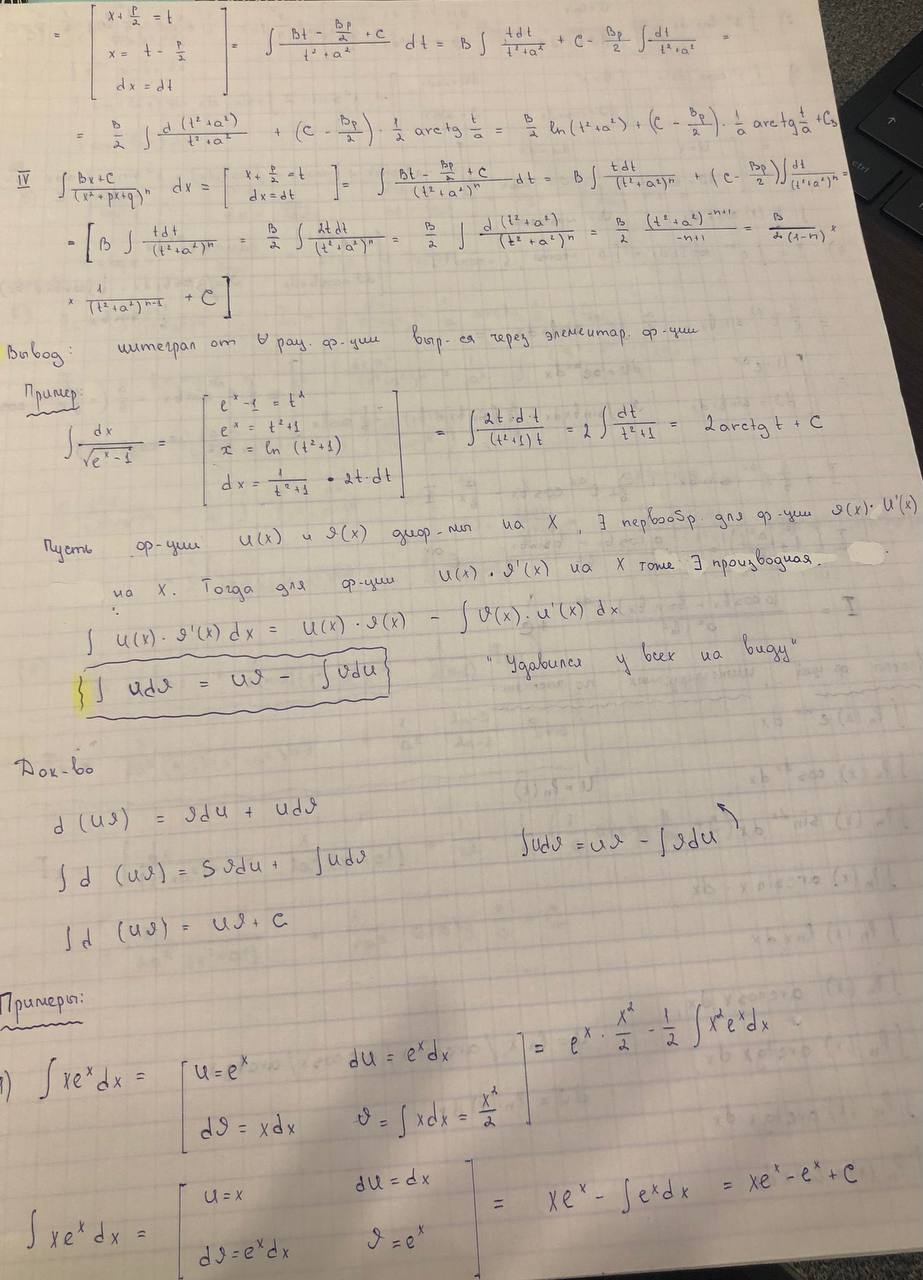 = [ x + p/2 = t
x = t - p/2
dx = dt ] = ∫ (Bt - Bp/2 + C)/(t² + a²) dt = B ∫ tdt/(t² + a²) + C - Bp/2 ∫ dt/(t² + a²) =
= B/2 ∫ d(t² + a²)/(t² + a²) + (C - Bp/2) · 1/2 arctg t/a = B/2 ln(t² + a²) + (C - Bp/2) · 1/a arctg t/a + C₃
IV ∫ (Bx + C)/(x² + px + q)ⁿ dx = [ x + p/2 = t
dx = dt ] = ∫ (Bt - Bp/2 + C)/(t² + a²)ⁿ dt = B ∫ tdt/(t² + a²)ⁿ + (C - Bp/2) ∫ dt/(t² + a²)ⁿ =
= [ B ∫ tdt/(t² + a²)ⁿ = B/2 ∫ 2tdt/(t² + a²)ⁿ = B/2 ∫ d(t² + a²)/(t² + a²)ⁿ = B/2 (t² + a²)⁻ⁿ⁺¹/(-n+1) = B/2(1-n) ×
× 1/(t² + a²)ⁿ⁻¹ + C ]
Вывод: интеграл от ∀ рац. ф-ции выр-ся через элементар. ф-ции
Пример:
∫ dx/√(eˣ - 1) = [ eˣ - 1 = t²
eˣ = t² + 1
x = ln (t² + 1)
dx = 1/(t² + 1) · 2t · dt ] = ∫ 2t · d · t/((t² + 1) t) = 2 ∫ dt/(t² + 1) = 2 arctg t + C
Пусть ф-ции U(x) и ϑ(x) диф-мы на X, ∃ первообр. для ф-ции ϑ(x) · U'(x)
на X. Тогда для ф-ции U(x) · ϑ'(x) на X тоже ∃ производная.
∫ U(x) · ϑ'(x) dx = U(x) · ϑ(x) - ∫ ϑ(x) · u'(x) dx
∫ Udϑ = Uϑ - ∫ ϑdu
"Удавился у всех на виду"
Док-во
d (Uϑ) = ϑdu + Udϑ
∫ d (Uϑ) = ∫ ϑdu + ∫ Udϑ
∫Udϑ = Uϑ - ∫ϑdU
∫ d (Uϑ) = Uϑ + C
Примеры:
1) ∫ xeˣ dx = [ U = eˣ dU = eˣdx
dϑ = xdx ϑ = ∫ xdx = x²/2 ] = eˣ · x²/2 - 1/2 ∫ x²eˣdx
∫ xeˣ dx = [ U = x dU = dx
dϑ = eˣdx ϑ = eˣ ] = xeˣ - ∫ eˣdx = xeˣ - eˣ + C